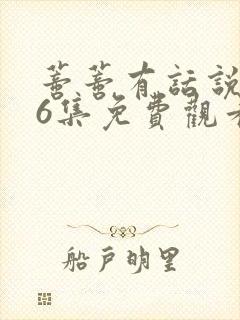 蔷蔷有話說
6集免費觀看
船戶明里